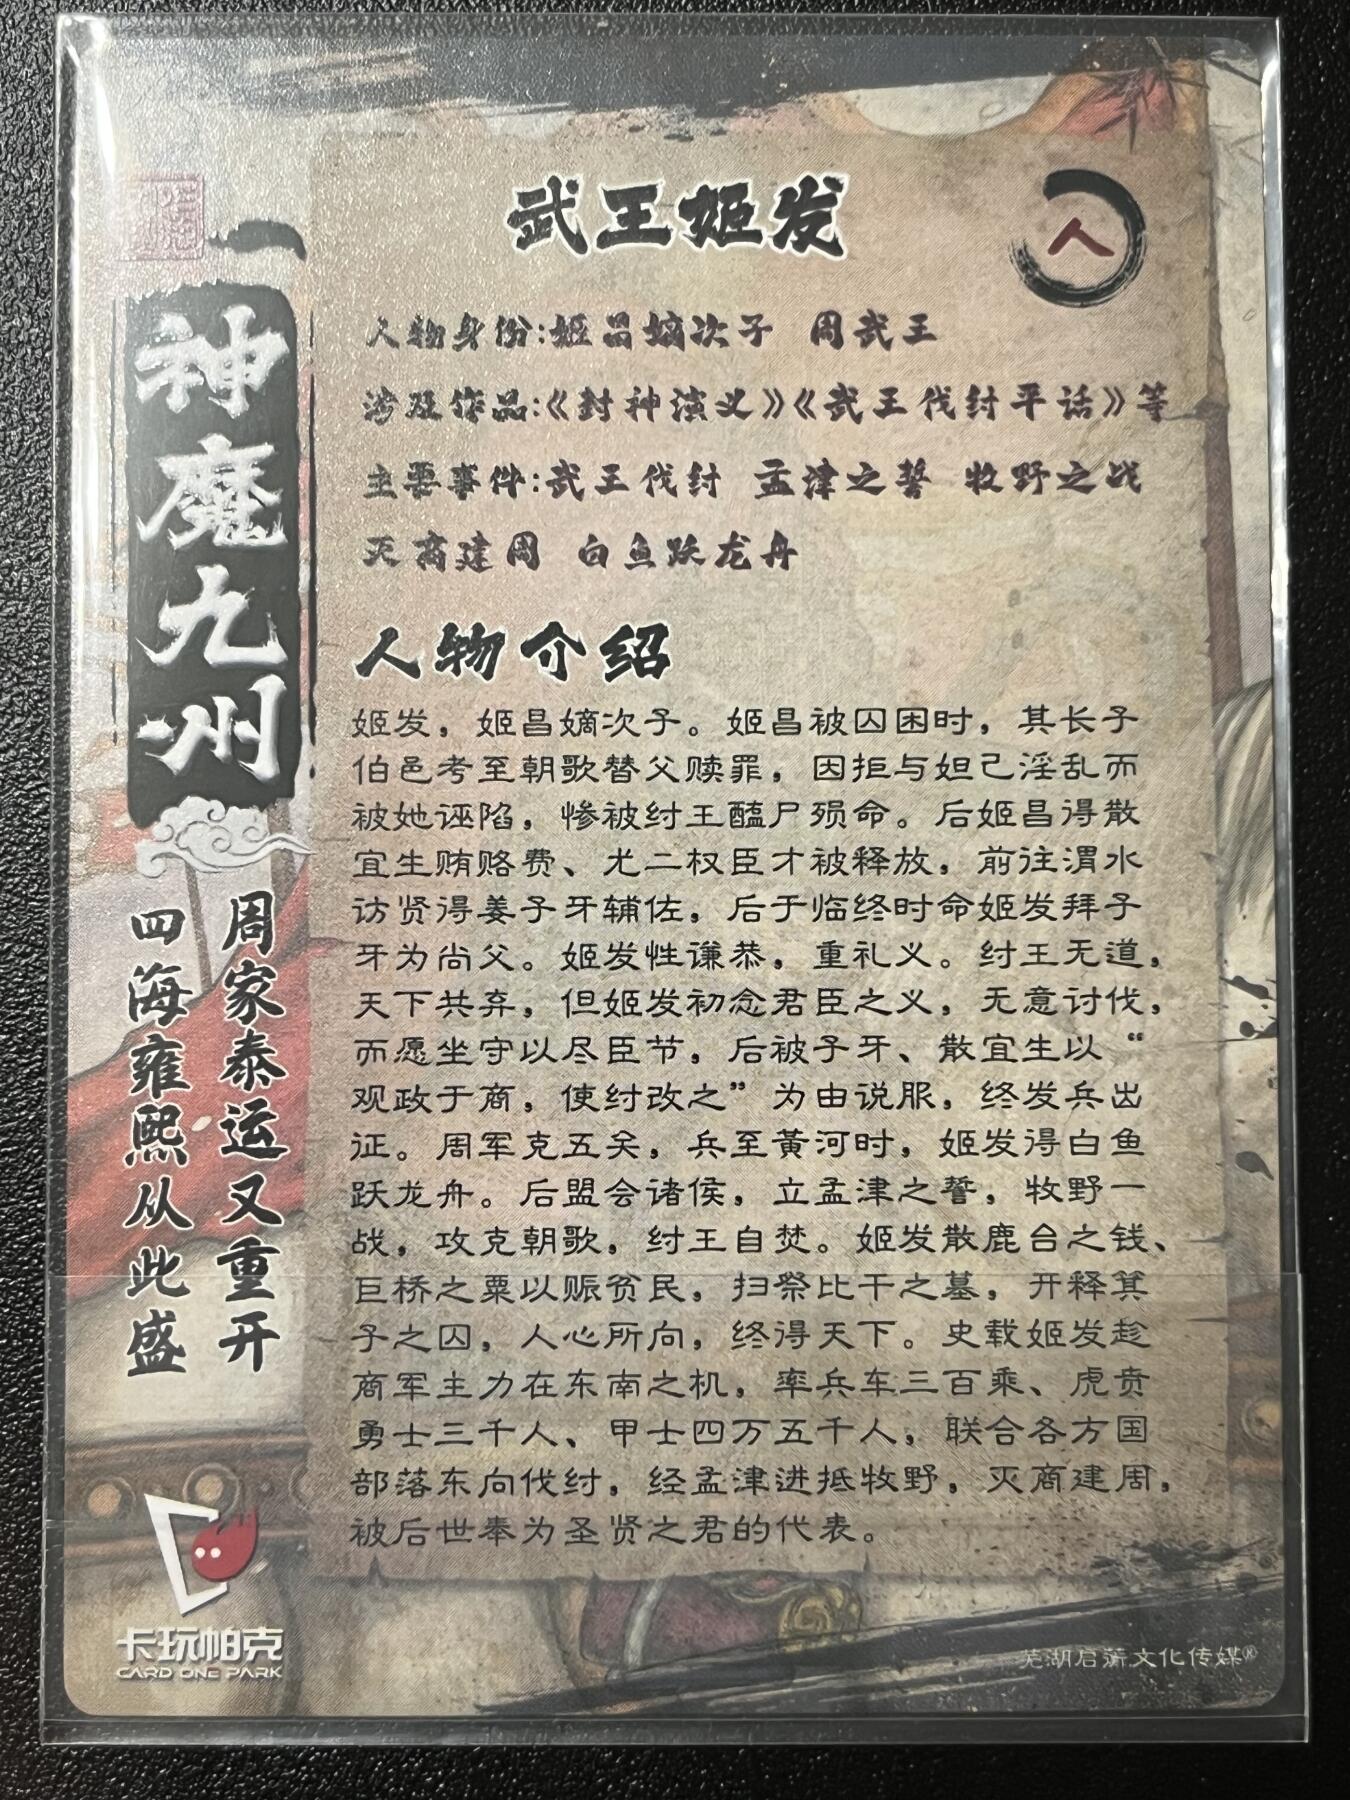 武王姬发
人
人物身份:姬昌嫡次子 周武王
涉及作品:《封神演义》《武王伐纣平话》等
主要事件:武王伐纣 孟津之誓 牧野之战
灭商建周 白鱼跃龙舟
人物介绍
姬发，姬昌嫡次子。姬昌被囚困时，其长子
伯邑考至朝歌替父赎罪，因拒与妲己淫乱而
被她诬陷，惨被纣王醢尸殒命。后姬昌得散
宜生贿赂费、尤二权臣才被释放，前往渭水
访贤得姜子牙辅佐，后于临终时命姬发拜子
牙为尚父。姬发性谦恭，重礼义。纣王无道，
天下共弃，但姬发初念君臣之义，无意讨伐，
而愿坐守以尽臣节，后被子牙、散宜生以“
观政于商，使纣改之”为由说服，终发兵出
征。周军克五关，兵至黄河时，姬发得白鱼
跃龙舟。后盟会诸侯，立孟津之誓，牧野一
战，攻克朝歌，纣王自焚。姬发散鹿台之钱、
巨桥之粟以赈贫民，扫祭比干之墓，开释箕
子之囚，人心所向，终得天下。史载姬发趁
商军主力在东南之机，率兵车三百乘、虎贲
勇士三千人、甲士四万五千人，联合各方国
部落东向伐纣，经孟津进抵牧野，灭商建周，
被后世奉为圣贤之君的代表。
神魔九州
周家泰运又重开
四海雍熙从此盛
卡玩帕克
CARD ONE PARK
芜湖启蒙文化传媒®